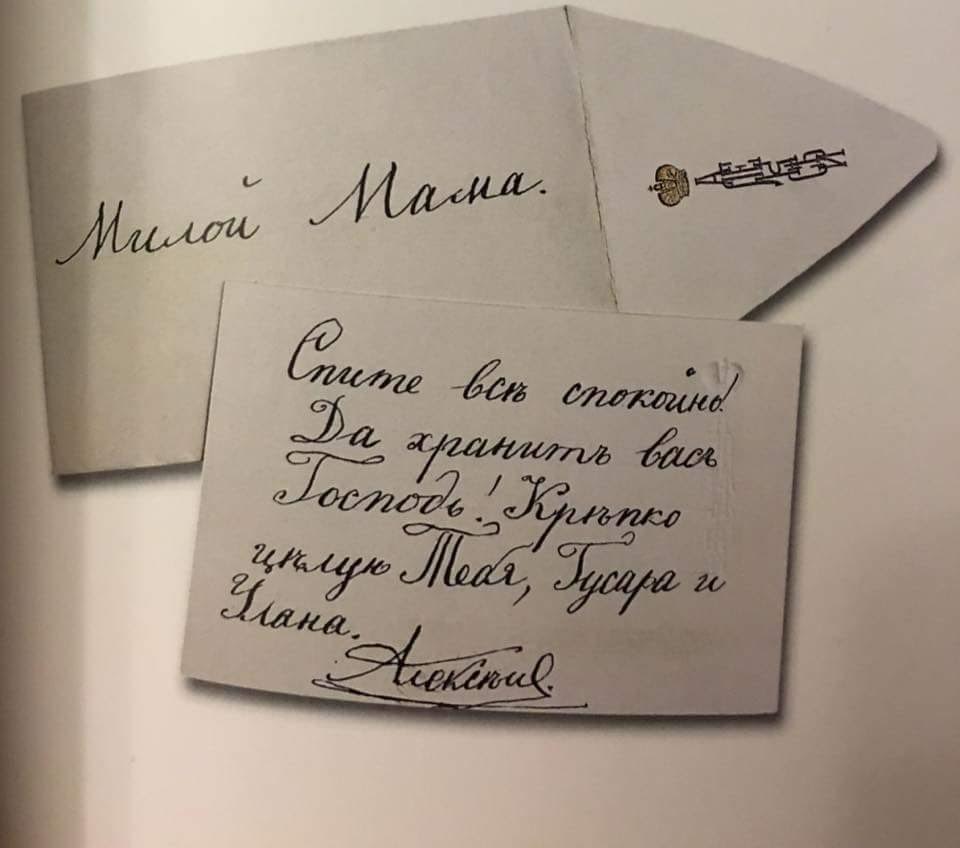 Милой Мама.
Спите всѣ спокойно!
Да хранитъ васъ
Господь! Крѣпко
цѣлую Тебя, Гусара и
Улана.
Алексѣй.